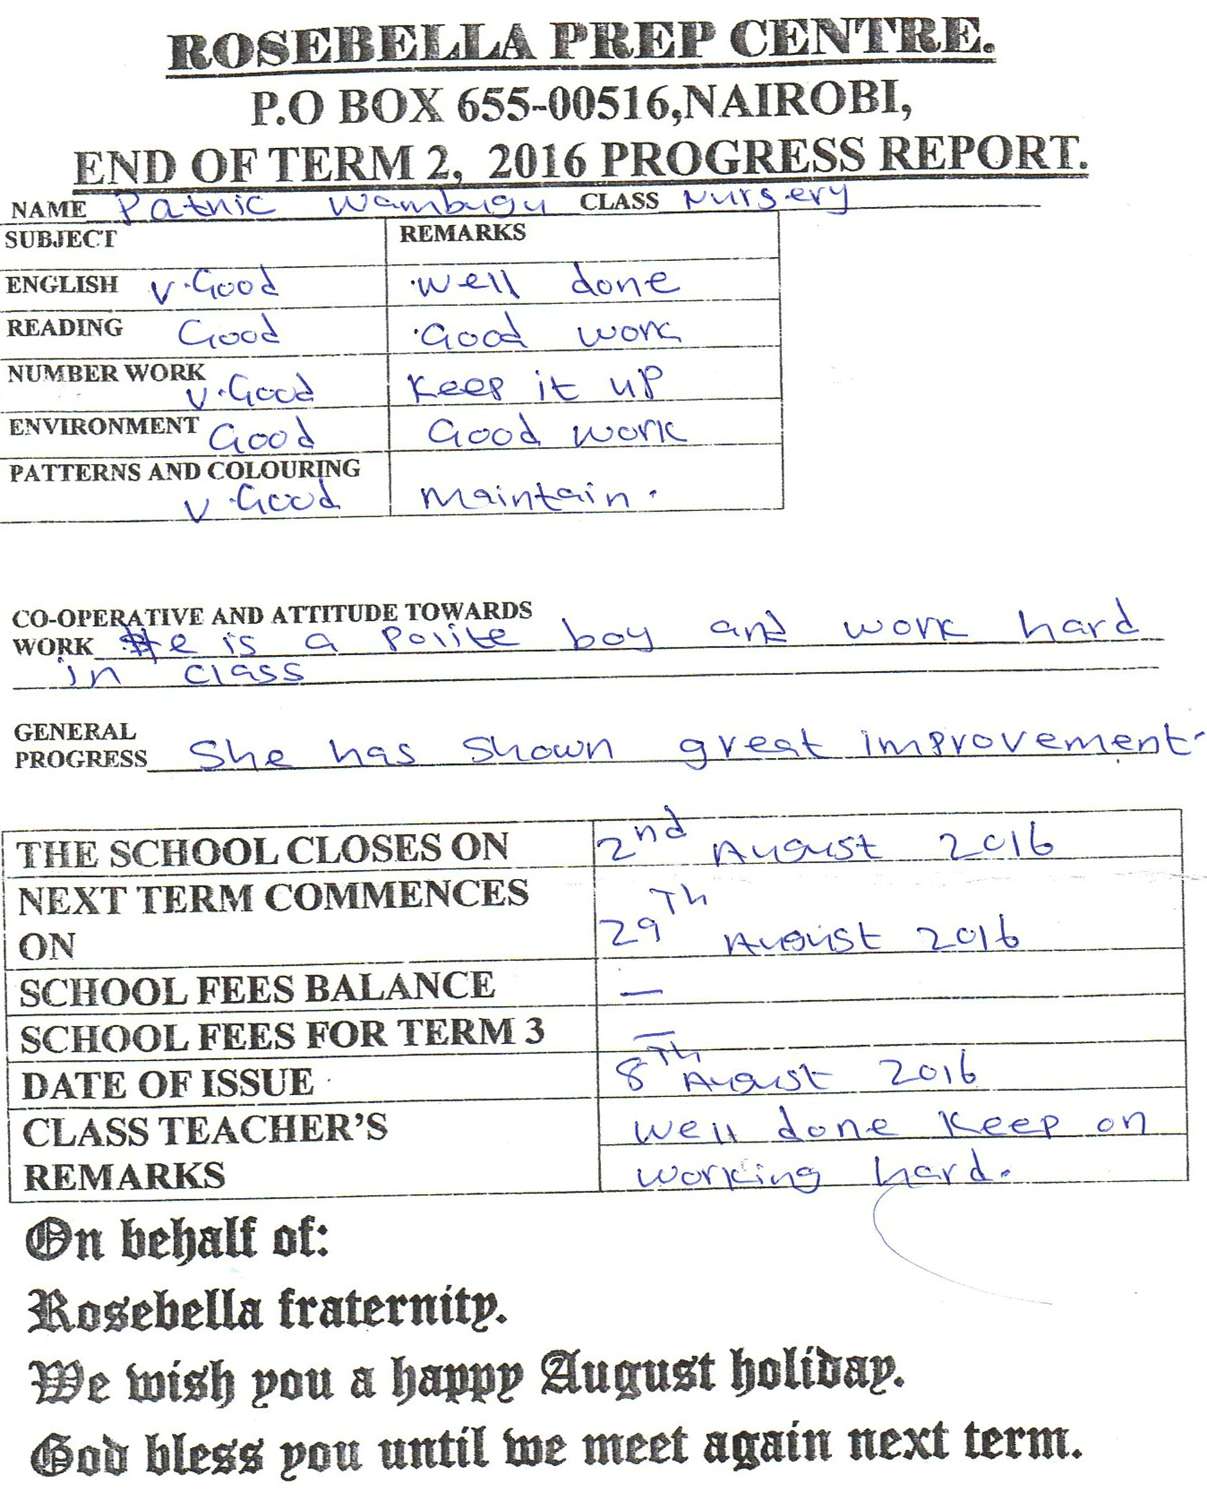 ROSEBELLA PREP CENTRE.
P.O BOX 655-00516,NAIROBI,
END OF TERM 2, 2016 PROGRESS REPORT.
NAME Patric Wambugu CLASS Nursery
SUBJECT REMARKS
ENGLISH V.Good .Well done
READING Good .Good work
NUMBER WORK
V.Good Keep it up
ENVIRONMENT Good Good work
PATTERNS AND COLOURING
V.Good Maintain.
CO-OPERATIVE AND ATTITUDE TOWARDS
WORK He is a polite boy and work hard
in class
GENERAL
PROGRESS She has shown great improvement.
THE SCHOOL CLOSES ON 2nd August 2016
NEXT TERM COMMENCES
ON 29Th August 2016
SCHOOL FEES BALANCE —
SCHOOL FEES FOR TERM 3 —
DATE OF ISSUE 8Th August 2016
CLASS TEACHER'S Well done Keep on
REMARKS working hard.
On behalf of:
Rosebella fraternity.
We wish you a happy August holiday.
God bless you until we meet again next term.